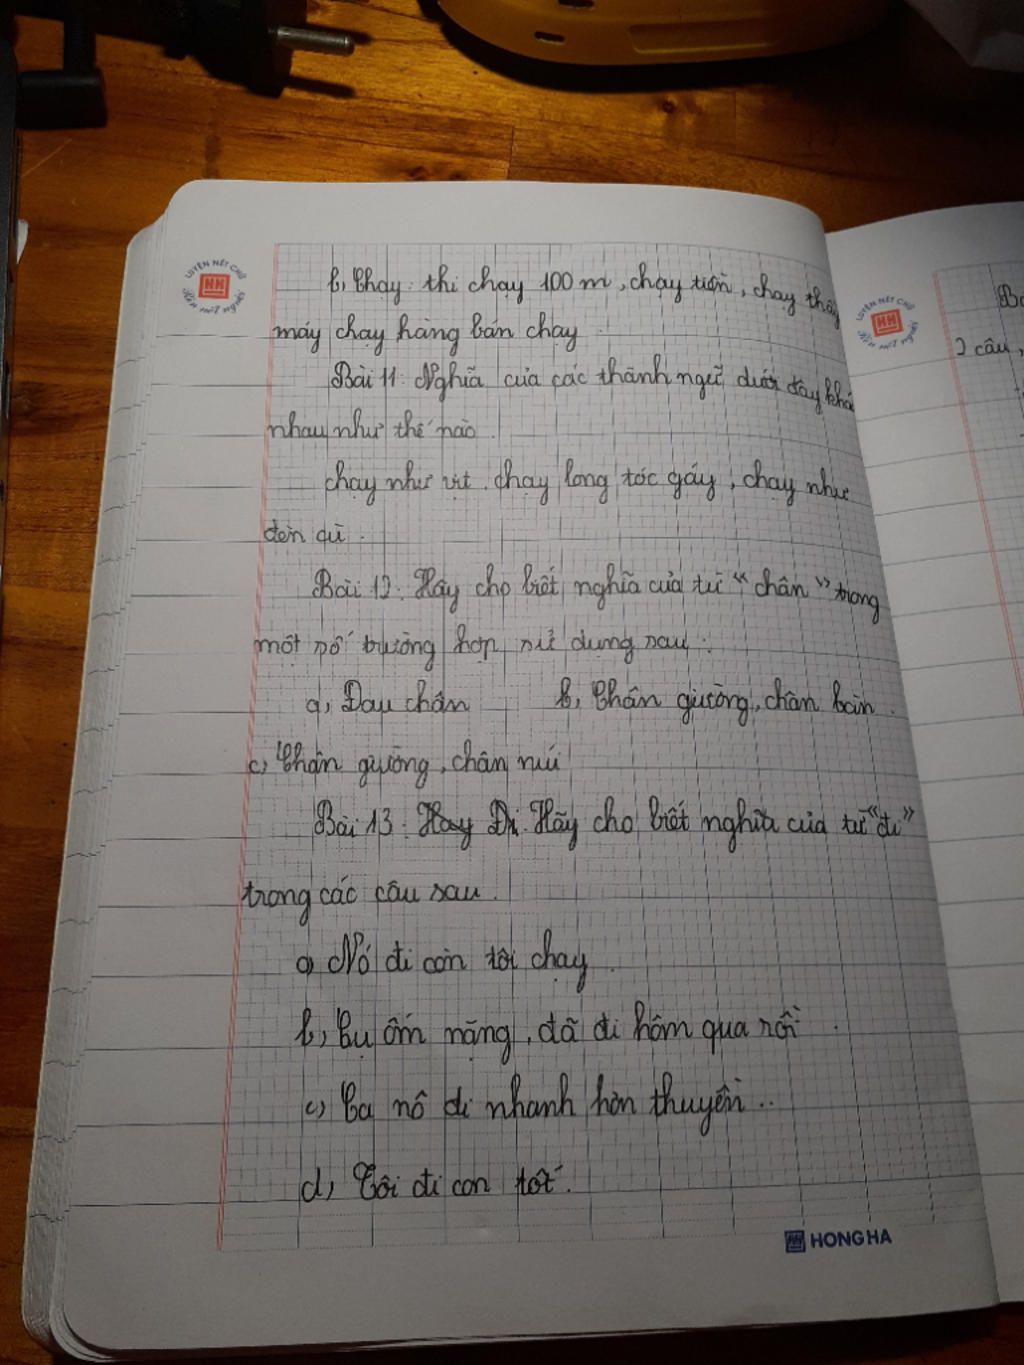 LUYỆN NÉT CHỮ
Rèn nết người
b, Chạy: thi chạy 100 m, chạy tiền, chạy thầy
máy chạy hàng bán chạy.
Bài 11: Nghĩa của các thành ngữ dưới đây khá
nhau như thế nào.
chạy như vịt, chạy long tóc gáy, chạy như
đèn cù.
Bài 12: Hãy cho biết nghĩa của từ "chân" trong
một số trường hợp sử dụng sau:
a, Đau chân b, Chân giường, chân bàn.
c, Chân giường, chân núi
Bài 13: Hay Đi. Hãy cho biết nghĩa của từ "đi"
trong các câu sau.
a, Nó đi còn tôi chạy.
b, Cụ ốm nặng, đã đi hôm qua rồi.
c, Ca nô đi nhanh hơn thuyền..
d, Tôi đi con tốt.
HONG HA
LUYỆN NÉT CHỮ
Rèn nết người
Bà
2 câu,